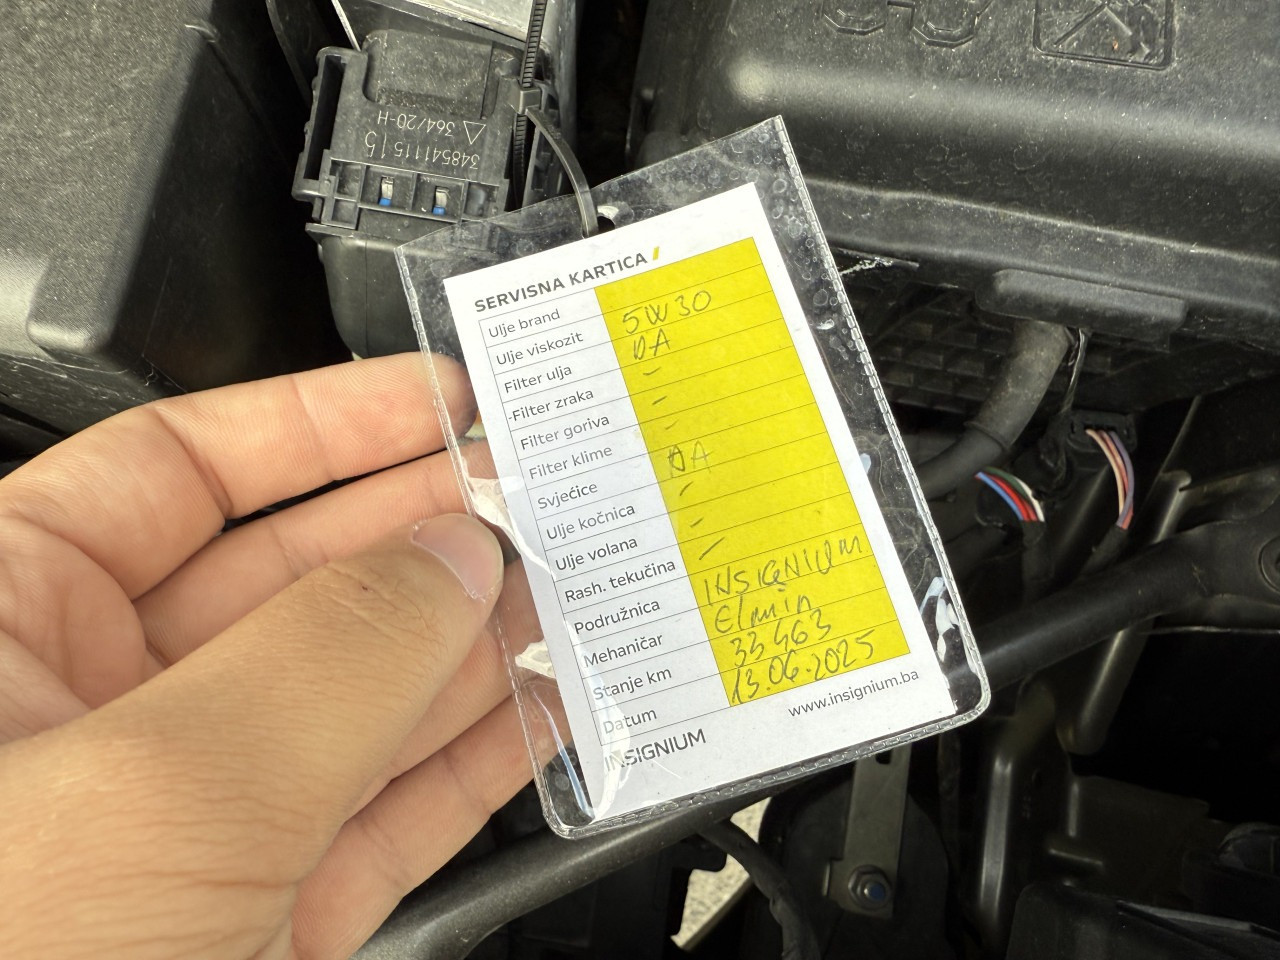 348541115 | 5
364/20-H
SERVISNA KARTICA
Ulje brand
Ulje viskozit 5W30
Filter ulja DA
Filter zraka -
Filter goriva -
Filter klime -
Svjećice DA
Ulje kočnica -
Ulje volana -
Rash. tekučina -
Podružnica INSIGNIUM
Mehaničar Elmin
Stanje km 33463
Datum 13.06.2025
INSIGNIUM www.insignium.ba